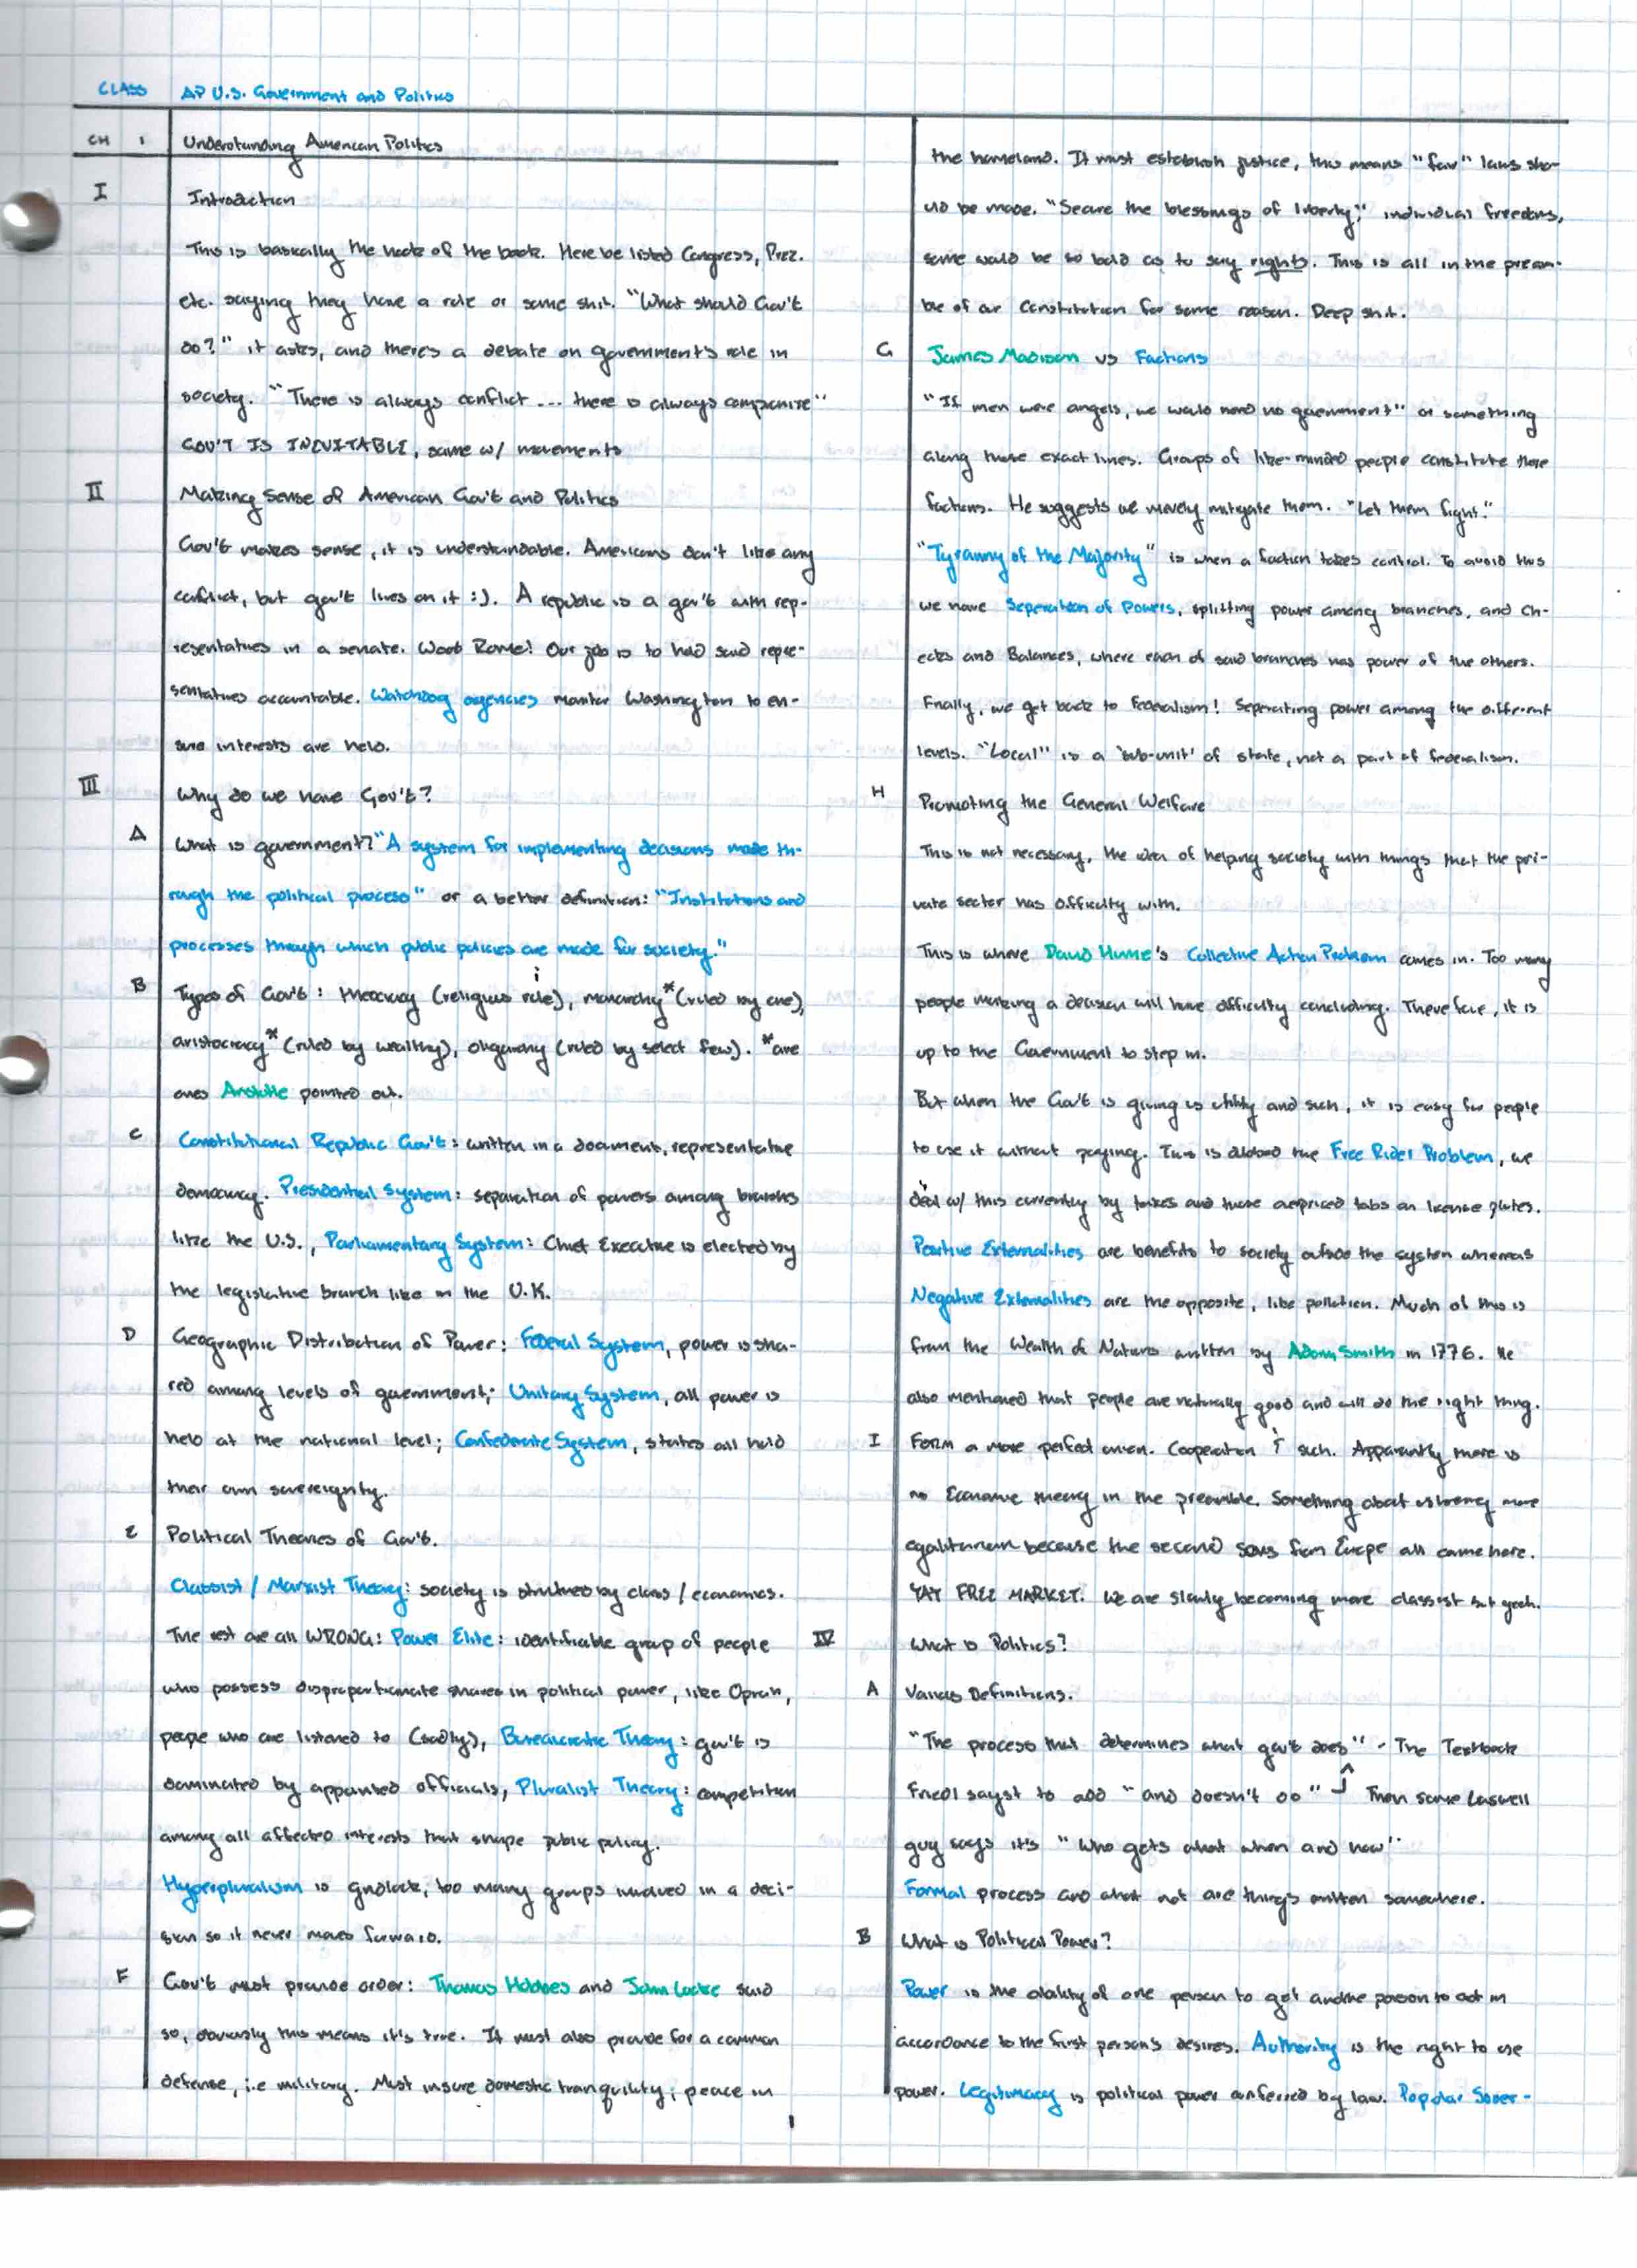 CLASS AP U.S. Government and Politics
CH 1 Understanding American Politics
I Introduction
This is basically the hook of the book. Here be listed Congress, Prez.
etc. saying they have a role or some shit. "What should Gov't
do?" it asks, and there's a debate on government's role in
society. "There is always conflict ... there is always compromise"
GOV'T IS INEVITABLE, same w/ movements
II Making Sense of American Gov't and Politics
Gov't makes sense, it is understandable. Americans don't like any
conflict, but gov't lives on it :). A republic is a gov't with rep-
resentatives in a senate. Woot Rome! Our job is to hold said repre-
sentatives accountable. Watchdog agencies monitor Washington to en-
sure interests are held.
III Why do we have Gov't?
A What is government? "A system for implementing decisions made th-
rough the political process" or a better definition: "Institutions and
processes through which public policies are made for society."
B Types of Gov't: theocracy (religious rule), monarchy* (ruled by one),
aristocracy* (ruled by wealthy), oligarchy (ruled by select few). *are
ones Aristotle pointed out.
C Constitutional Republic Gov't: written in a document, representative
democracy. Presidential System: separation of powers among branches
like the U.S., Parliamentary System: Chief Executive is elected by
the legislative branch like in the U.K.
D Geographic Distribution of Power: Federal System, power is sha-
red among levels of government; Unitary System, all power is
held at the national level; Confederate System, states all hold
their own sovereignity.
E Political Theories of Gov't.
Classist / Marxist Theory: society is divided by class / economics.
The rest are all WRONG: Power Elite: identifiable group of people
who possess disproportionate shares in political power, like Oprah,
people who are listened to (sadly), Bureaucratic Theory: gov't is
dominated by appointed officials, Pluralist Theory: competition
among all affected interests that shape public policy.
Hyperpluralism is gridlock, too many groups involved in a deci-
sion so it never moves forward.
F Gov't must provide order: Thomas Hobbes and John Locke said
so, obviously this means it's true. It must also provide for a common
defense, i.e military. Must insure domestic tranquility; peace in
the homeland. It must establish justice, this means "fair" laws sho-
uld be made. "Secure the blessings of liberty;" individual freedoms,
some would be so bold as to say rights. This is all in the pream-
ble of our Constitution for some reason. Deep shit.
G James Madison vs Factions
"If men were angels, we would need no government" or something
along those exact lines. Groups of like-minded people constitute these
factions. He suggests we merely mitigate them. "Let them fight."
"Tyranny of the Majority" is when a faction takes control. To avoid this
we have Seperation of Powers, splitting power among branches, and Ch-
ecks and Balances, where each of said branches has power of the others.
Finally, we get back to Federalism! Seperating power among the different
levels. "Local" is a 'sub-unit' of state, not a part of federalism.
H Promoting the General Welfare
This is not necessary, the idea of helping society with things that the pri-
vate sector has difficulty with.
This is where David Hume's Collective Action Problem comes in. Too many
people making a decision will have difficulty concluding. Therefore, it is
up to the Government to step in.
But when the Gov't is giving us utility and such, it is easy for people
to use it without paying. This is dubbed the Free Rider Problem, we
deal w/ this currently by taxes and those overpriced tabs on license plates.
Positive Externalities are benefits to society outside the system whereas
Negative Externalities are the opposite, like pollution. Much of this is
from the Wealth of Nations written by Adam Smith in 1776. He
also mentioned that people are naturally good and will do the right thing.
I FORM a more perfect union. Cooperation & such. Apparantly there is
no Economic theory in the preamble. Something about us being more
egalitarian because the second sons from Europe all came here.
YAY FREE MARKET. We are slowly becoming more classist but yeah.
IV What is Politics?
A Various Definitions.
"The process that determines what gov't does" - The Textbook
Friedl sayst to add "and doesn't do" Then some Laswell
guy says it's "Who gets what when and how"
Formal process and what not are things written somewhere.
B What is Political Power?
Power is the ability of one person to get another person to act in
accordance to the first person's desires. Authority is the right to use
power. Legitimacy is political power conferred by law. Popular Sover-
1